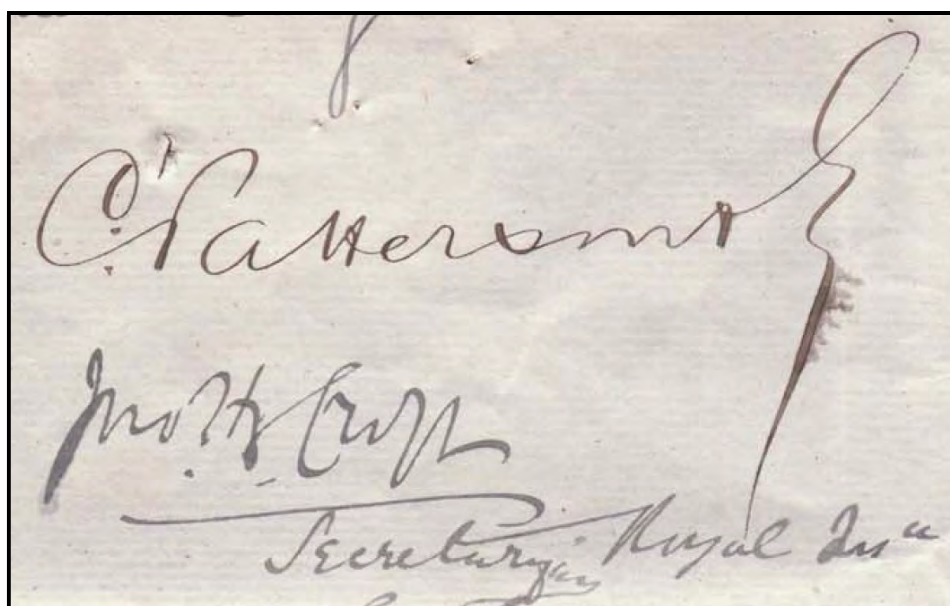 C. Patterson
Jno. Hy. Croft
Secretary Royal Insᵃ